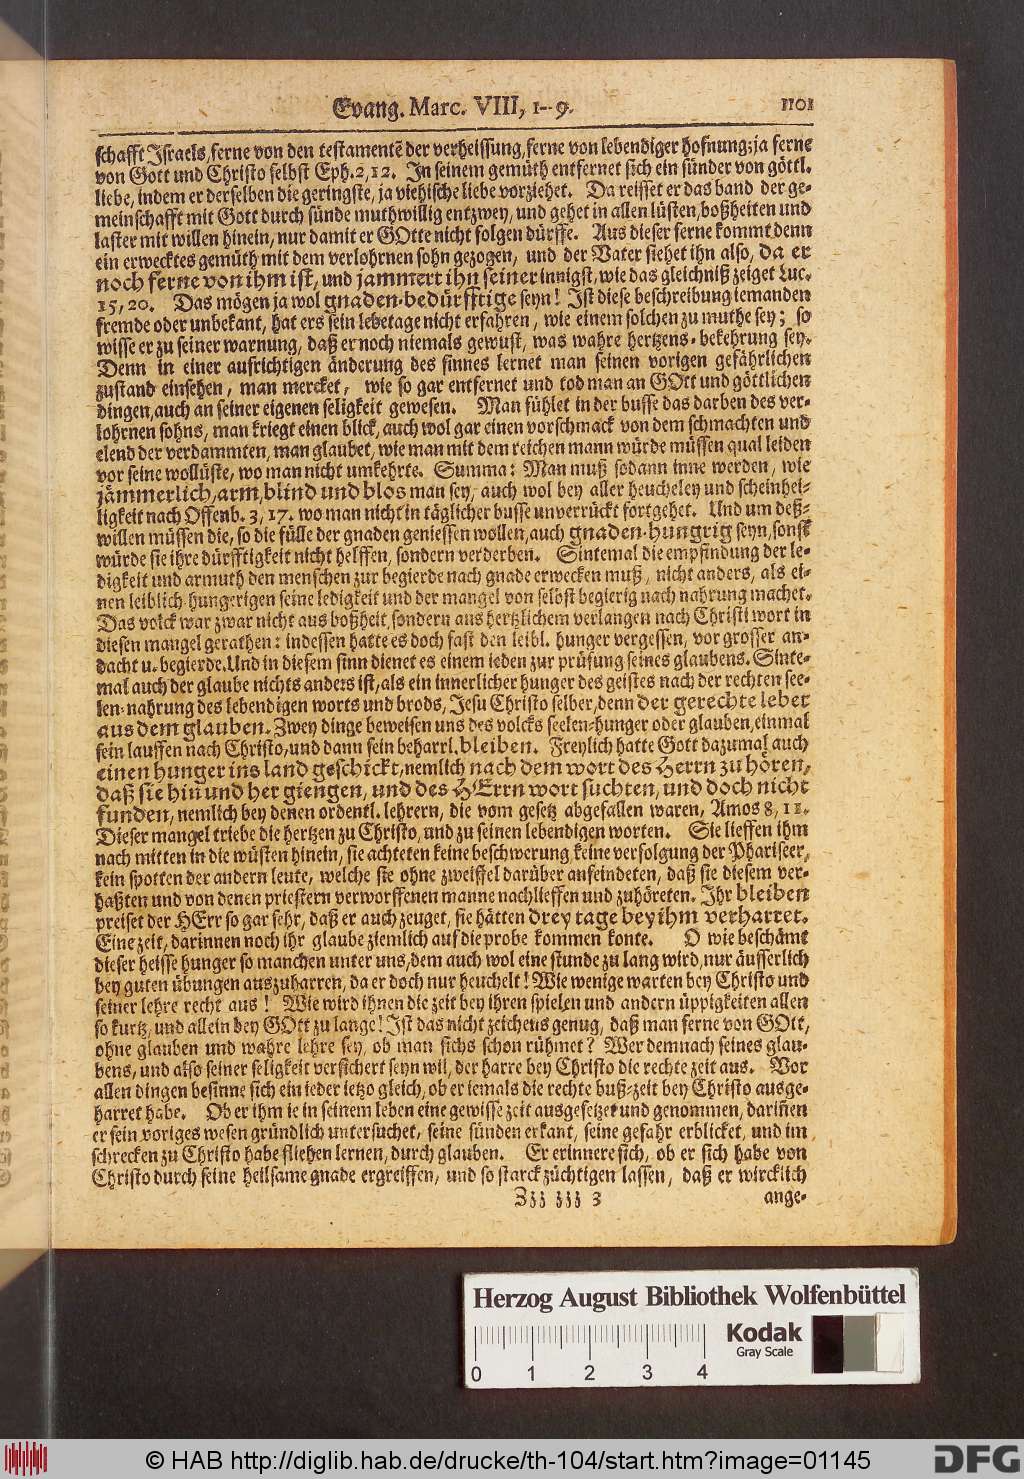 Evang. Marc. VIII, 1--9.
1101
schafft Israels, ferne von den testamentē der verheissung, ferne von lebendiger hofnung; ja ferne
von Gott und Christo selbst Eph. 2, 12. In seinem gemüth entfernet sich ein sünder von göttl.
liebe, indem er derselben die geringste, ja viehische liebe vorziehet. Da reisset er das band der ge-
meinschafft mit Gott durch sünde muthwillig entzwey, und gehet in allen lüsten, boßheiten und
laster mit willen hinein, nur damit er GOtte nicht folgen dürffe. Aus dieser ferne kommt denn
ein erwecktes gemüth mit dem verlohrnen sohn gezogen, und der Vater siehet ihn also, da er
noch ferne von ihm ist, und jammert ihn seiner innigst, wie das gleichniß zeiget Luc.
15, 20. Das mögen ja wol gnaden-bedürfftige seyn! Ist diese beschreibung iemanden
fremde oder unbekant, hat ers sein lebetage nicht erfahren, wie einem solchen zu muthe sey; so
wisse er zu seiner warnung, daß er noch niemals gewust, was wahre hertzens-bekehrung sey.
Denn in einer aufrichtigen änderung des sinnes lernet man seinen vorigen gefährlichen
zustand einsehen, man mercket, wie so gar entfernet und tod man an GOtt und göttlichen
dingen, auch an seiner eigenen seligkeit gewesen. Man fühlet in der busse das darben des ver-
lohrnen sohns, man kriegt einen blick, auch wol gar einen vorschmack von dem schmachten und
elend der verdammten, man glaubet, wie man mit dem reichen mann würde müssen qual leiden
vor seine wollüste, wo man nicht umkehrte. Summa: Man muß sodann inne werden, wie
jämmerlich, arm, blind und blos man sey, auch wol bey aller heucheley und scheinhei-
ligkeit nach Offenb. 3, 17. wo man nicht in täglicher busse unverrückt fortgehet. Und um deß-
willen müssen die, so die fülle der gnaden geniessen wollen, auch gnaden-hungrig seyn, sonst
würde sie ihre dürfftigkeit nicht helffen, sondern verderben. Sintemal die empfindung der le-
digkeit und armuth den menschen zur begierde nach gnade erwecken muß, nicht anders, als ei-
nen leiblich-hungerigen seine ledigkeit und der mangel von selbst begierig nach nahrung machet.
Das volck war zwar nicht aus boßheit, sondern aus hertzlichem verlangen nach Christi wort in
diesen mangel gerathen: indessen hatte es doch fast den leibl. hunger vergessen, vor grosser an-
dacht u. begierde. Und in diesem sinn dienet es einem ieden zur prüfung seines glaubens. Sinte-
mal auch der glaube nichts anders ist, als ein innerlicher hunger des geistes nach der rechten see-
len-nahrung des lebendigen worts und brods, Jesu Christo selber, denn der gerechte lebet
aus dem glauben. Zwey dinge beweisen uns des volcks seelen-hunger oder glauben, einmal
sein lauffen nach Christo, und dann sein beharrl. bleiben. Freylich hatte Gott dazumal auch
einen hunger ins land geschickt, nemlich nach dem wort des Herrn zu hören,
daß sie hin und her giengen, und des HErrn wort suchten, und doch nicht
funden, nemlich bey denen ordentl. lehrern, die vom gesetz abgefallen waren, Amos 8, 11.
Dieser mangel triebe die hertzen zu Christo, und zu seinen lebendigen worten. Sie lieffen ihm
nach mitten in die wüsten hinein, sie achteten keine beschwerung, keine verfolgung der Phariseer,
kein spotten der andern leute, welche sie ohne zweiffel darüber anfeindeten, daß sie diesem ver-
haßten und von denen priestern verworffenen manne nachlieffen und zuhöreten. Ihr bleiben
preiset der HErr so gar sehr, daß er auch zeuget, sie hätten drey tage bey ihm verharret.
Eine zeit, darinnen noch ihr glaube ziemlich auf die probe kommen konte. O wie beschämt
dieser heisse hunger so manchen unter uns, dem auch wol eine stunde zu lang wird, nur äusserlich
bey guten übungen auszuharren, da er doch nur heuchelt! Wie wenige warten bey Christo und
seiner lehre recht aus! Wie wird ihnen die zeit bey ihren spielen und andern üppigkeiten allen
so kurtz, und allein bey GOtt zu lange! Ist das nicht zeichens genug, daß man ferne von GOtt,
ohne glauben und wahre lehre sey, ob man sichs schon rühmet? Wer demnach seines glau-
bens, und also seiner seligkeit versichert seyn wil, der harre bey Christo die rechte zeit aus. Vor
allen dingen besinne sich ein ieder ietzo gleich, ob er iemals die rechte buß-zeit bey Christo ausge-
harret habe. Ob er ihm ie in seinem leben eine gewisse zeit ausgesetzet und genommen, dariñen
er sein voriges wesen gründlich untersuchet, seine sünden erkant, seine gefahr erblicket, und im
schrecken zu Christo habe fliehen lernen, durch glauben. Er erinnere sich, ob er sich habe von
Christo durch seine heilsame gnade ergreiffen, und so starck züchtigen lassen, daß er wircklich
Zzz zzz 3
ange-
Herzog August Bibliothek Wolfenbüttel
Kodak
Gray Scale
0 1 2 3 4
© HAB http://diglib.hab.de/drucke/th-104/start.htm?image=01145
DFG